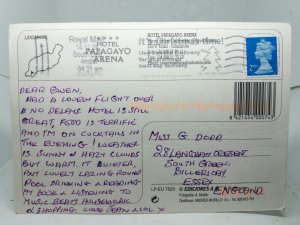 LANZAROTE
Royal Mail
HOTEL
PAPAGAYO
ARENA
HOTEL PAPAGAYO ARENA
DEAR GWEN,
HAD A LOVELY FLIGHT OVER
NO DELAYS. HOTEL IS STILL
GREAT, FOOD IS TERRIFIC
AND I'M ON COCKTAILS IN
THE EVENING! WEATHER
IS SUNNY & HAZY CLOUDS
BUT WARM. IT BUSIER,
BUT LOVELY LAZING ROUND
POOL DRINKING & READING
MY BOOK & LISTENING TO
MUSIC BEATS HOUSEWORK
& SHOPPING LOVE
MISS G DODD
28 LANGHAM CRESENT
SOUTH GREEN
BILLERICAY
ESSEX
ENGLAND.
2ND
8 421454 000743